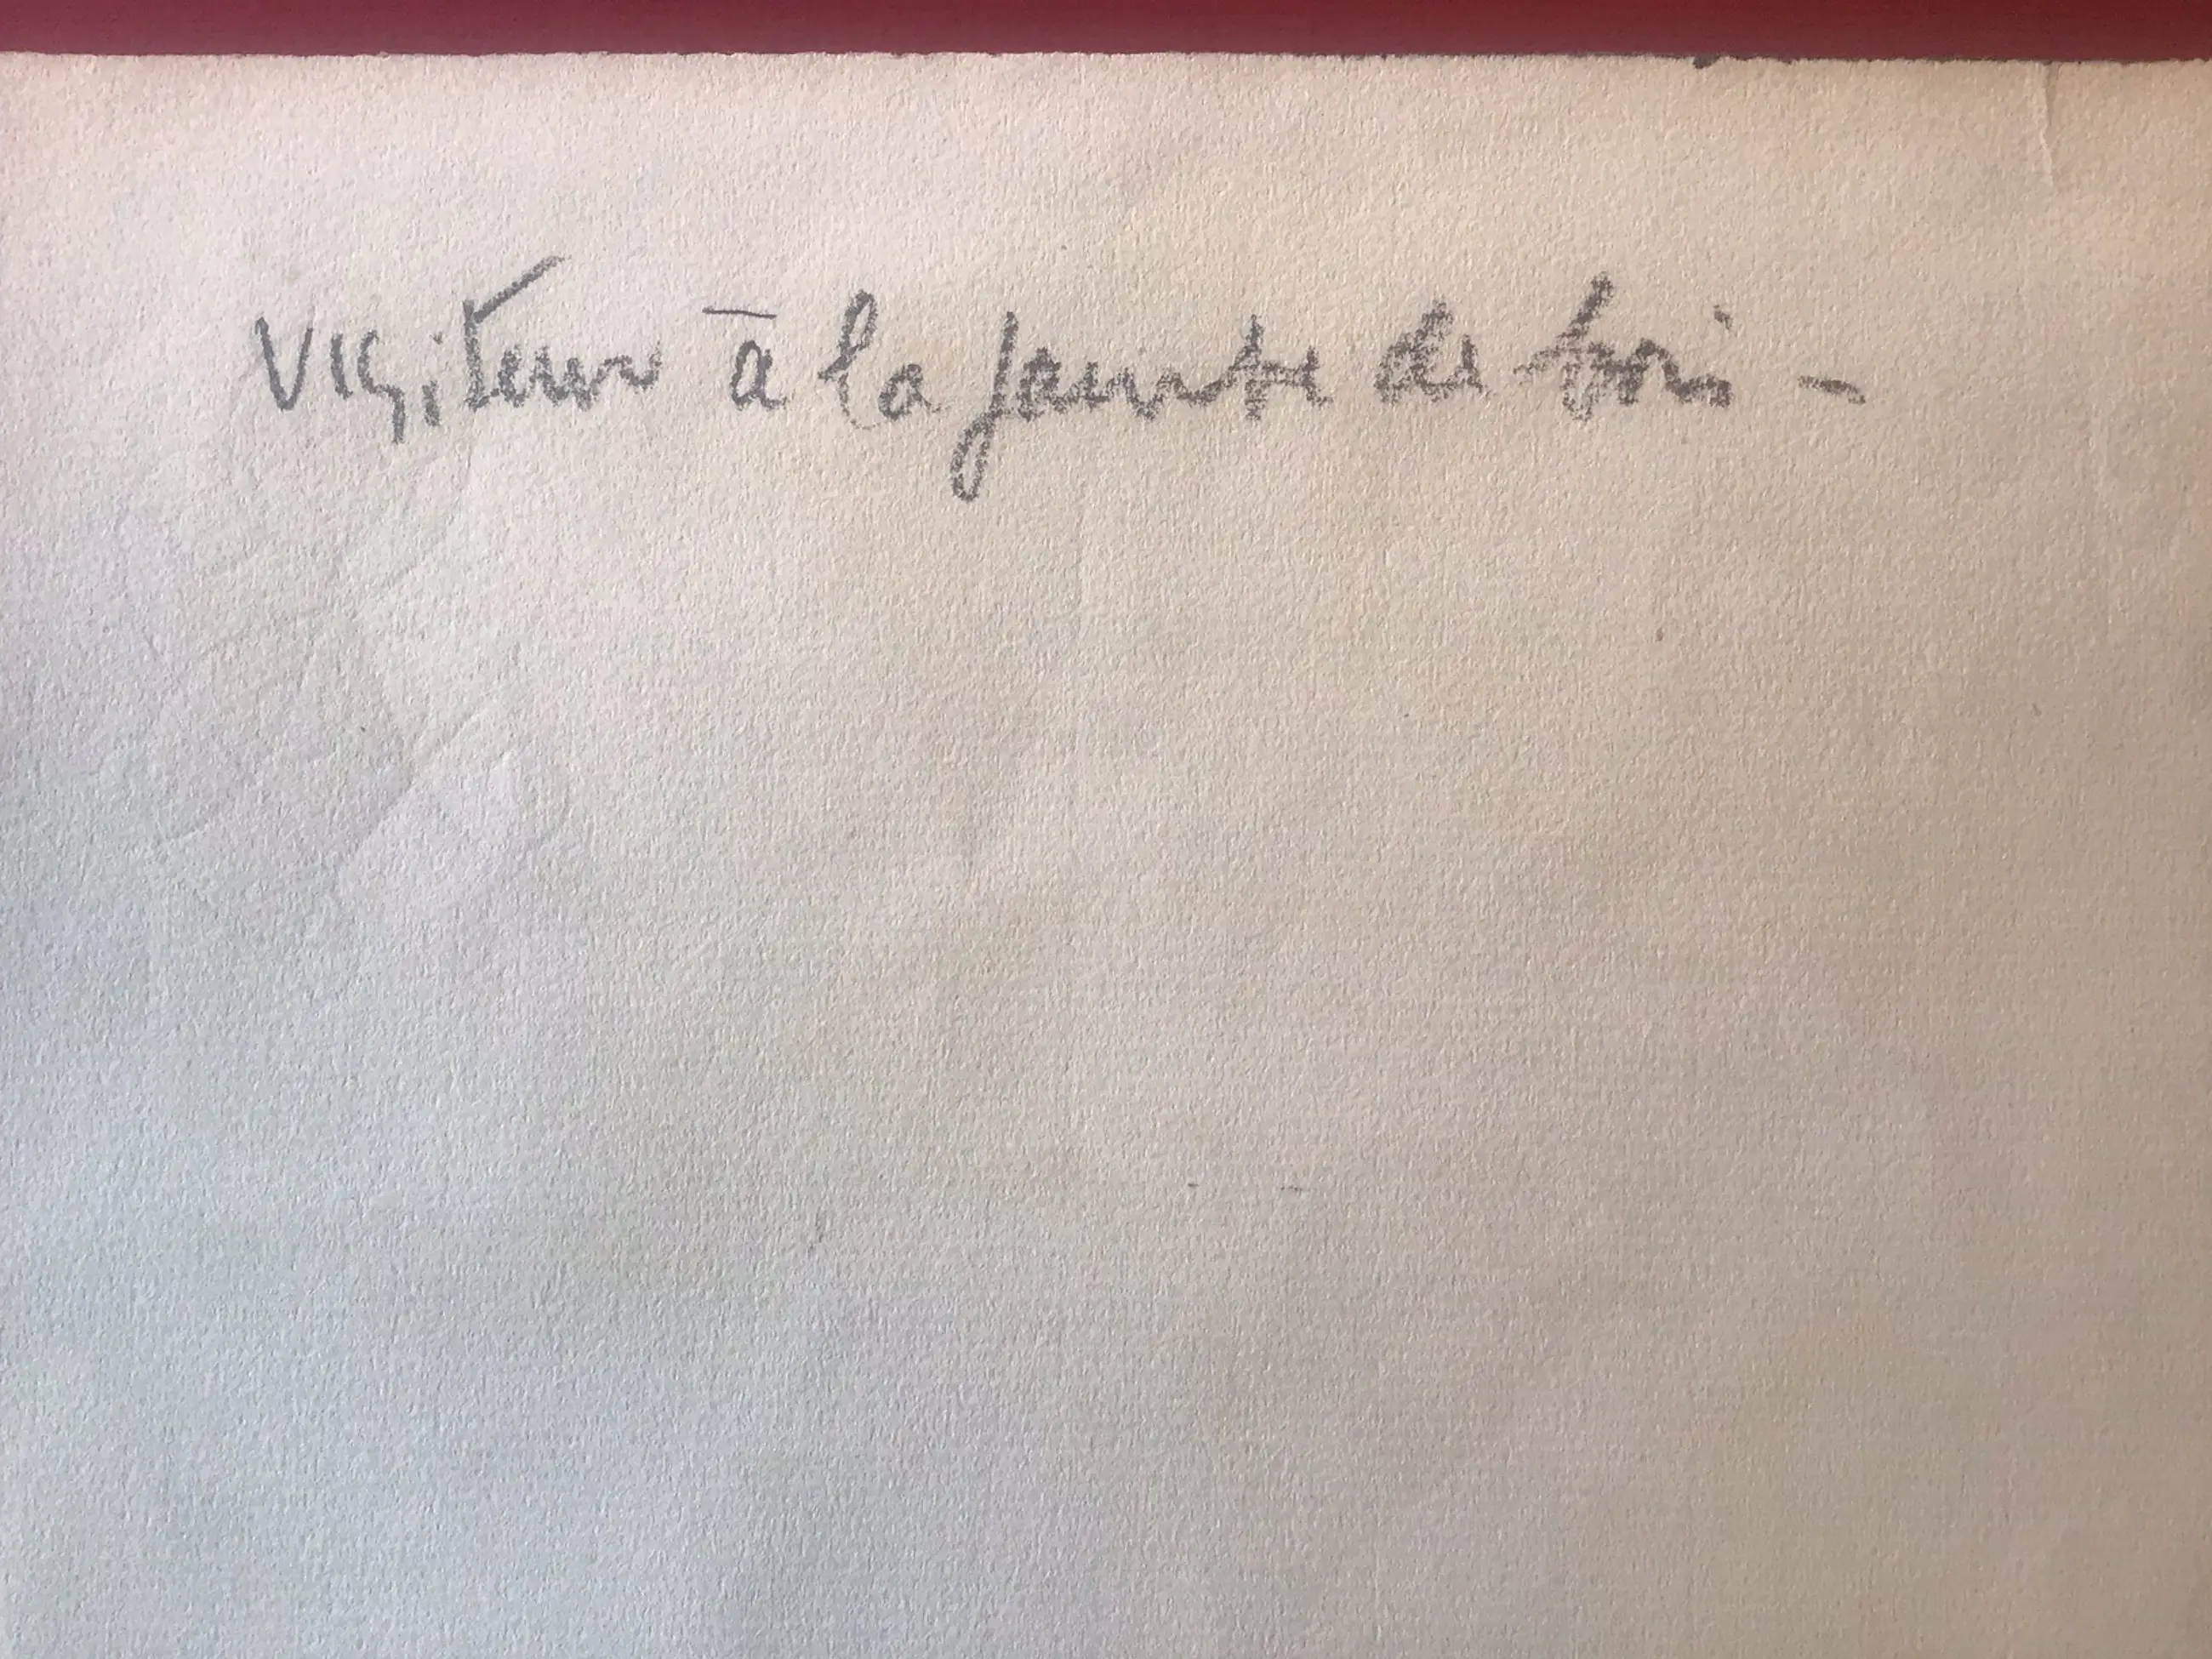 Visiteur à la jambe de bois -